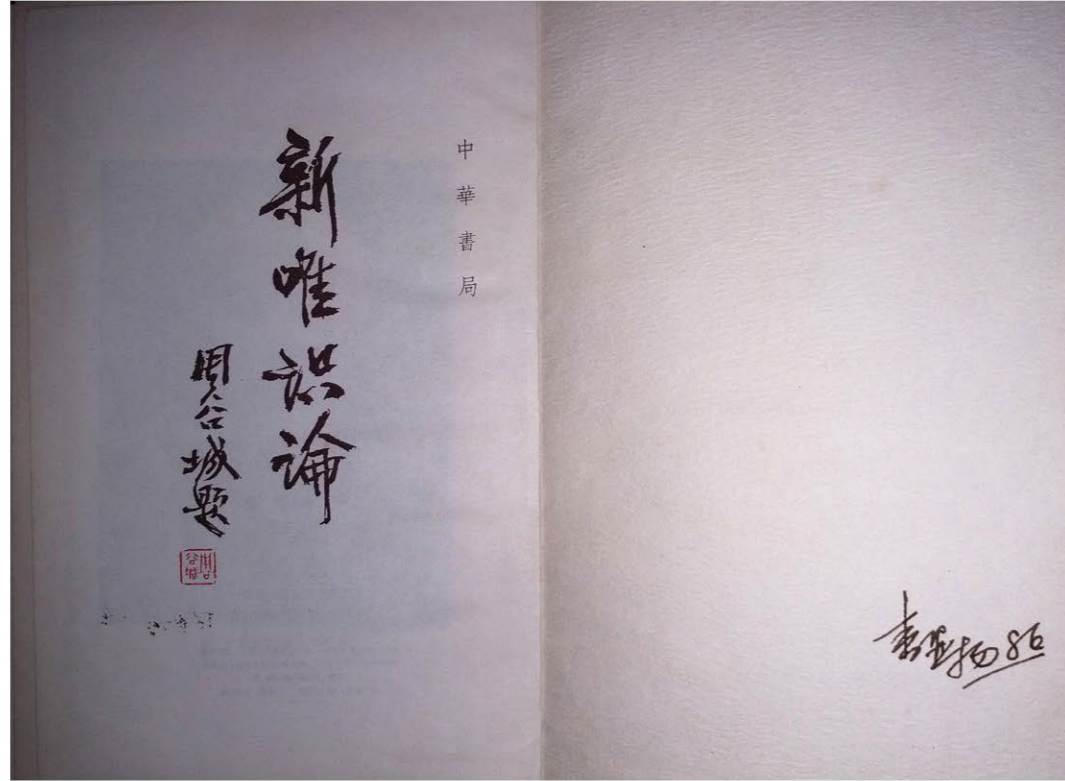 中華書局
新唯识論
周谷城题
周谷城
86